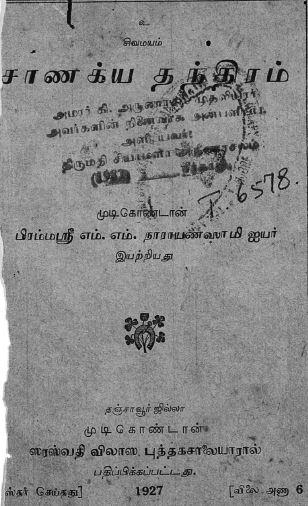 உ
சிவமயம்
சாணக்ய தந்திரம்
அமரர் கி.
அவர்களின் நினைவாக அன்பளிப்பு
திருமதி
P 6578.
முடிகொண்டான்
பிரம்மஸ்ரீ எம். எம். நாராயணஸாமி ஐயர்
இயற்றியது
தஞ்சாவூர் ஜில்லா
முடிகொண்டான்
ஸரஸ்வதி விலாஸ புத்தகசாலையாரால்
பதிப்பிக்கப்பட்டது.
ஸ்தர் செய்தது] 1927 [விலை அணா 6